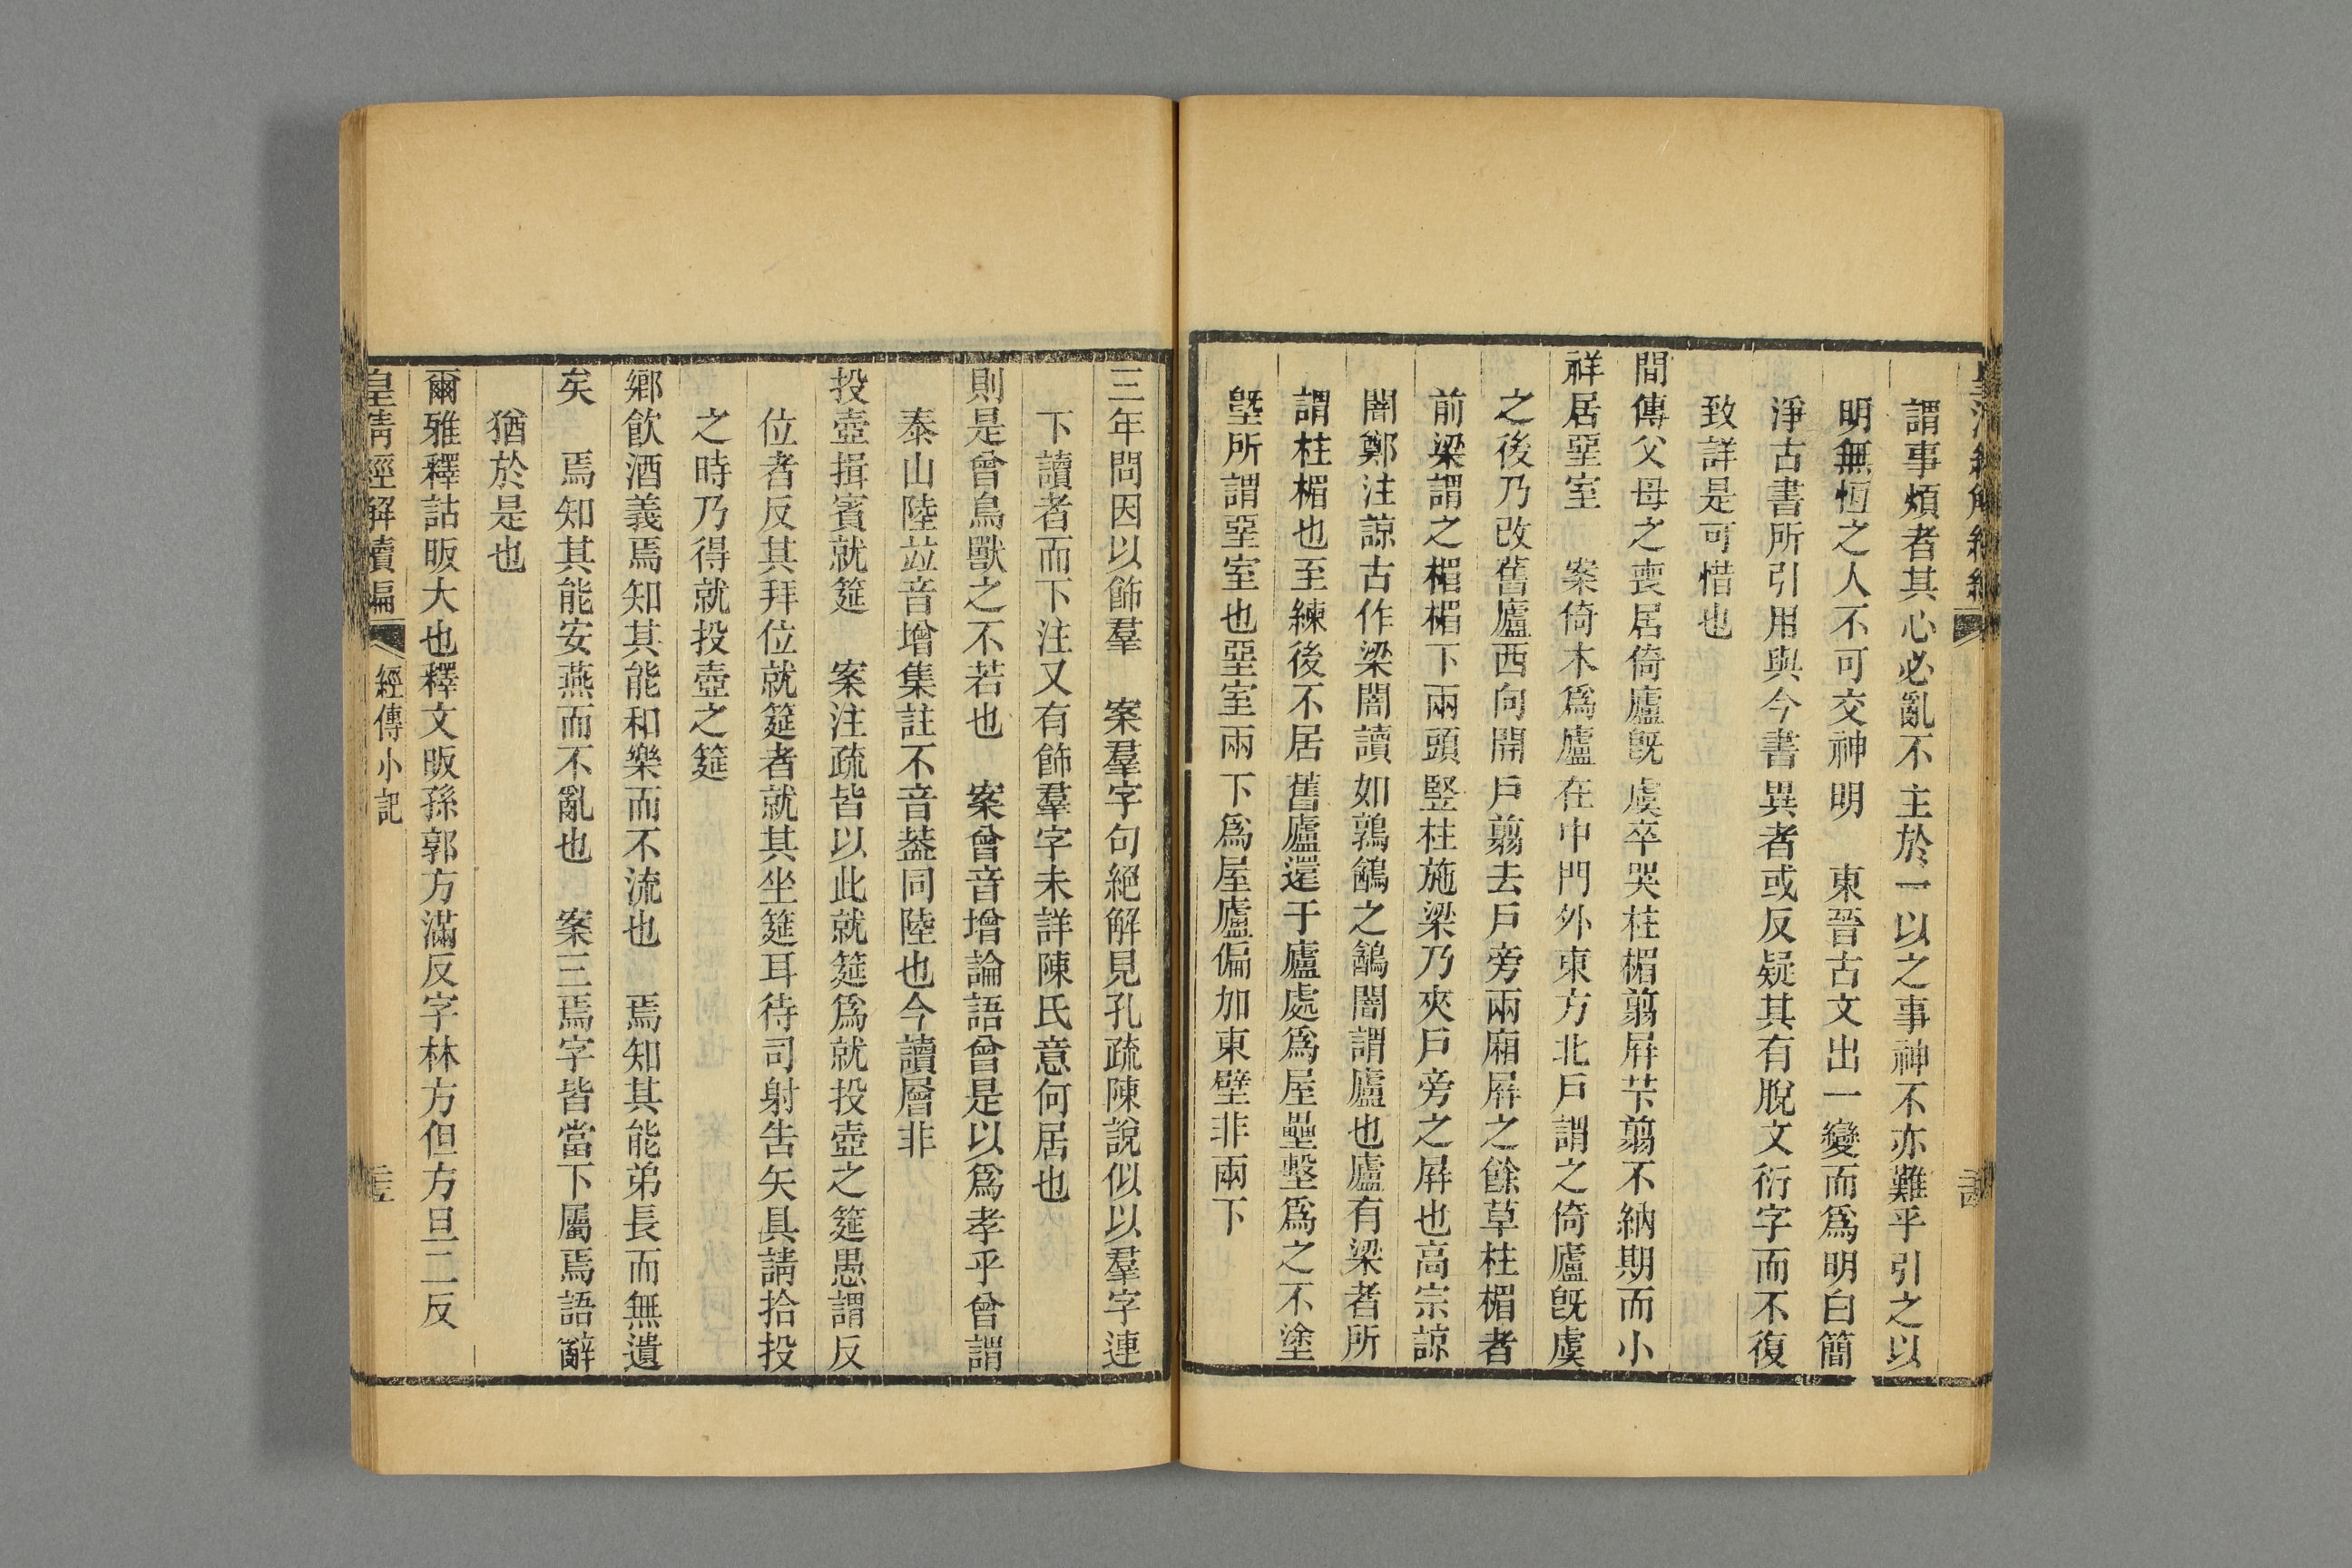 謂事煩者其心必亂不主於一以之事神不亦難乎引之以
明無恆之人不可交神明　東晉古文出一變而爲明白簡
淨古書所引用與今書異者或反疑其有脫文衍字而不復
致詳是可惜也
間傳父母之喪居倚廬旣虞卒哭柱楣翦屛芐翦不納期而小
祥居堊室　案倚木爲廬在中門外東方北戶謂之倚廬旣虞
之後乃改舊廬西向開戶翦去戶旁兩廂屛之餘草柱楣者
前梁謂之楣楣下兩頭竪柱施梁乃夾戶旁之屛也高宗諒
闇鄭注諒古作梁闇讀如鶉鶕之鶕闇謂廬也廬有梁者所
謂柱楣也至練後不居舊廬還于廬處爲屋壘墼爲之不塗
塈所謂堊室也堊室兩下爲屋廬偏加東壁非兩下
三年問因以飾羣　案羣字句絕解見孔疏陳說似以羣字連
下讀者而下注又有飾羣字未詳陳氏意何居也
則是曾鳥獸之不若也　案曾音增論語曾是以爲孝乎曾謂
泰山陸竝音增集註不音葢同陸也今讀層非
投壺揖賓就筵　案注疏皆以此就筵爲就投壺之筵愚謂反
位者反其拜位就筵者就其坐筵耳待司射告矢具請拾投
之時乃得就投壺之筵
鄉飮酒義焉知其能和樂而不流也　焉知其能弟長而無遺
矣　焉知其能安燕而不亂也　案三焉字皆當下屬焉語辭
猶於是也
爾雅釋詁昄大也釋文昄孫郭方滿反字林方但方旦二反
皇淸經解續編　經傳小記